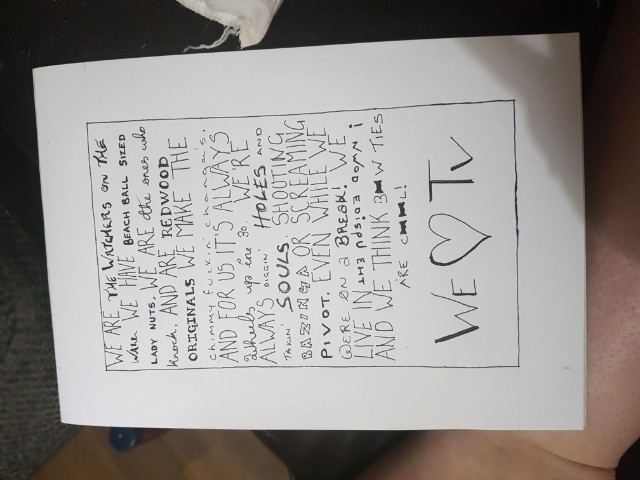 WE ARE THE WATCHERS ON THE
WALL. WE HAVE BEACH BALL SIZED
LADY NUTS. WE ARE the ones who
knock, AND ARE REDWOOD
ORIGINALS WE MAKE THE
chimmy fuck'n' changa's,
AND FOR US IT'S ALWAYS
wheels up ine 30. WE'RE
ALWAYS DIGGIN' HOLES AND
TAKIN' SOULS. SHOUTING
BAZINGA OR SCREAMING
PIVOT. EVEN WHILE WE
WERE ON a BREAK! WE
LIVE IN THE UPSIDE DOWN!
AND WE THINK BOW TIES
ARE COOL!
WE ♡ TV